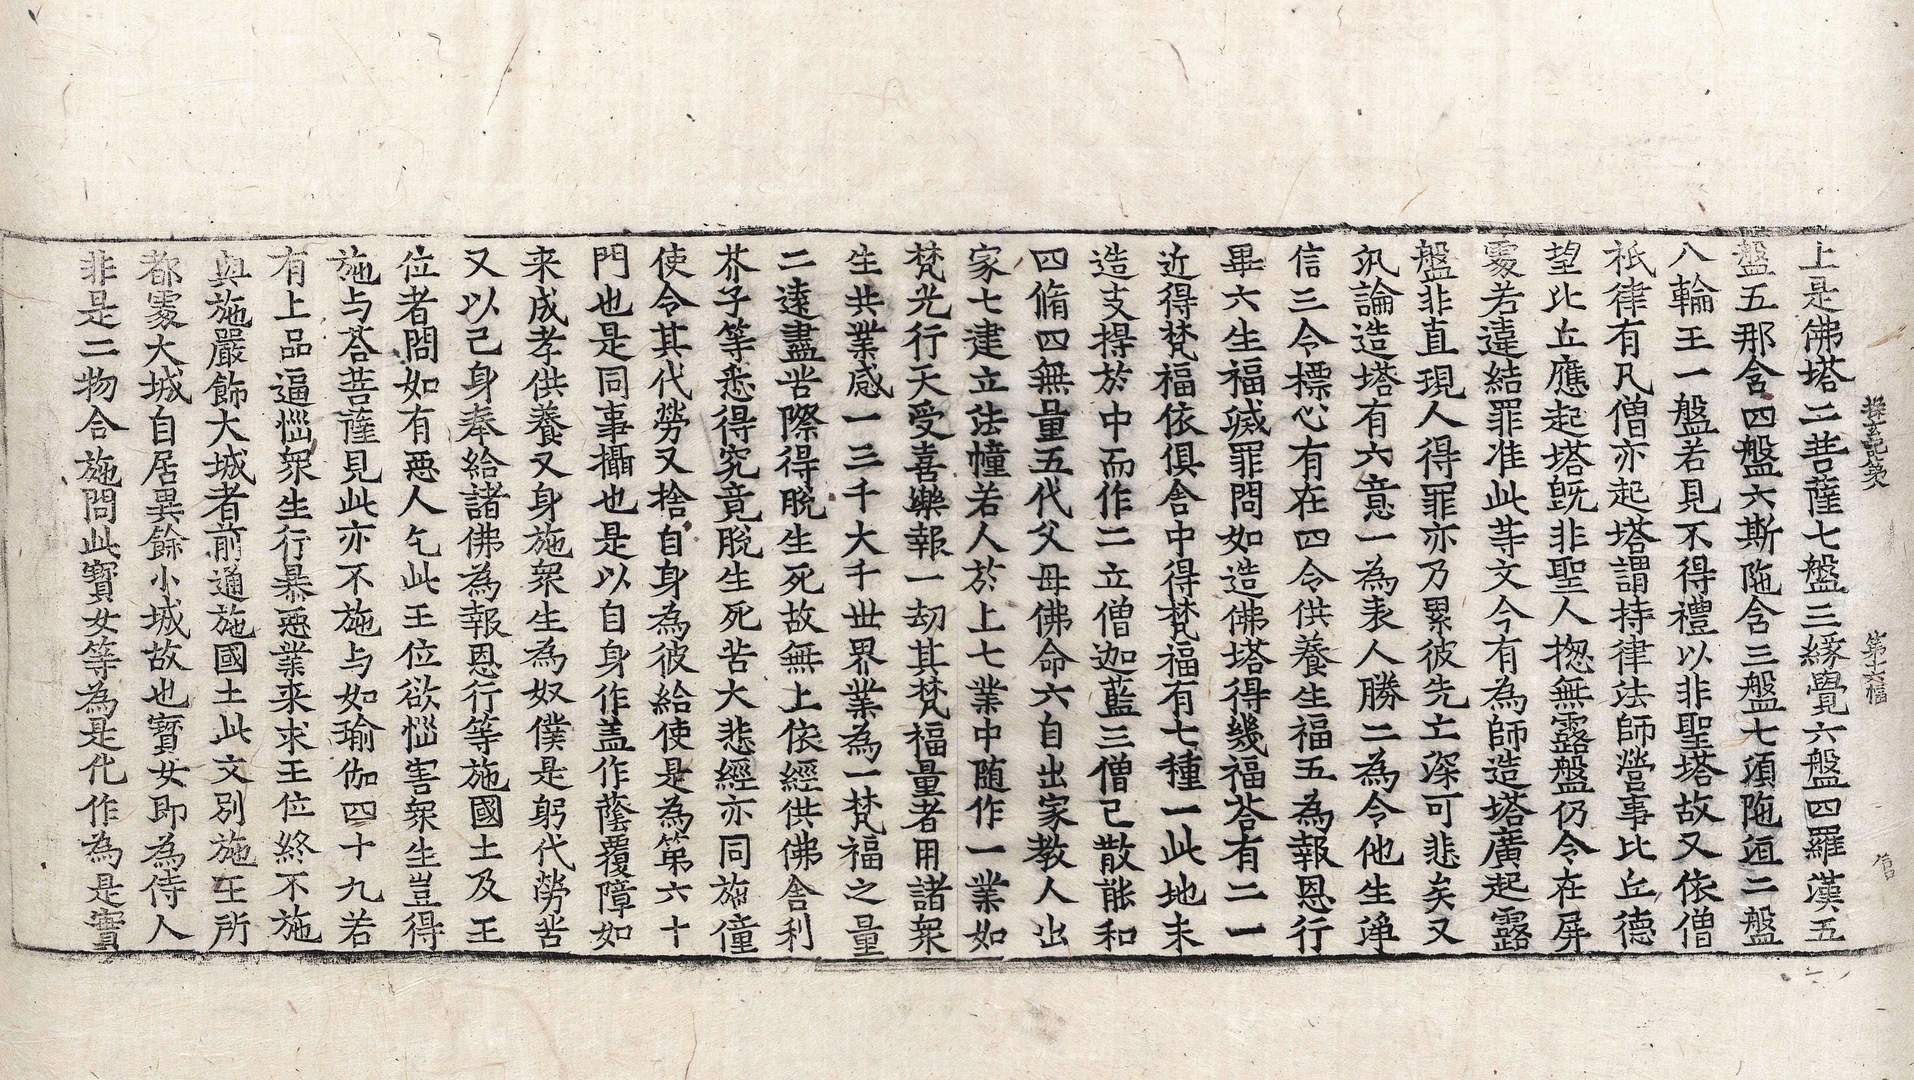 上是佛塔二菩薩七盤三緣覺六盤四羅漢五
盤五那含四盤六斯陁含三盤七須陁洹二盤
八輪王一盤若見不得禮以非聖塔故又依僧
祇律有凡僧亦起塔謂持律法師營事比丘德
望比丘應起塔旣非聖人揔無露盤仍令在屏
處若違結罪准此等文今有為師造塔廣起露
盤非直現人得罪亦乃累彼先亡深可悲矣又
汎論造塔有六意一為表人勝二為令他生淨
信三令標心有在四令供養生福五為報恩行
畢六生福滅罪問如造佛塔得幾福荅有二一
近得梵福依俱舍中得梵福有七種一此地未
造支提於中而作二立僧迦藍三僧已散能和
四脩四無量五代父母佛命六自出家教人出
家七建立法幢若人於上七業中随作一業如
梵光行天受喜樂報一劫其梵福量者用諸衆
生共業感一三千大千世界業為一梵福之量
二遠盡苦際得脫生死故無上依經供佛舍利
芥子等悉得究竟脫生死苦大悲經亦同施僮
使令其代勞又捨自身為彼給使是為第六十
門也是同事攝也是以自身作盖作蔭覆障如
来成孝供養又身施衆生為奴僕是躬代勞苦
又以己身奉給諸佛為報恩行等施國土及王
位者問如有惡人乞此王位欲惱害衆生豈得
施与荅菩薩見此亦不施与如瑜伽四十九若
有上品逼惱衆生行暴惡業来求王位終不施
與施嚴飾大城者前通施國土此文別施王所
都處大城自居異餘小城故也寳女即為侍人
非是二物合施問此寳女等為是化作為是實